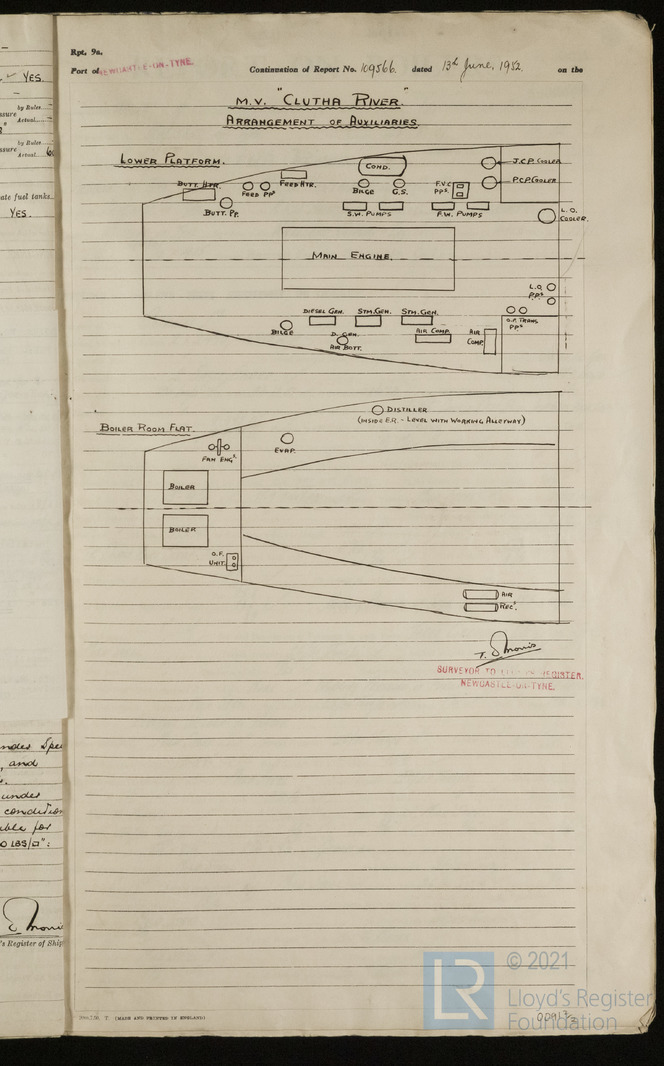 YES.
by Rules
Actual
by Rules
Actual
ate fuel tanks
YES.
Rpt. 9a.
Port of NEWCASTLE-ON-TYNE. Continuation of Report No. 109566. dated 13th June, 1952. on the
M.V. "CLUTHA RIVER."
ARRANGEMENT OF AUXILIARIES.
LOWER PLATFORM.
COND.
J.C.P COOLER
P.C.P COOLER
BUTT. HTR.
FEED PPS
FEED HTR.
BILGE
G.S.
F.V.C
PPS.
BUTT. PP.
S.W. PUMPS
F.W. PUMPS
L.O.
COOLER.
MAIN ENGINE.
L.O
PPS
DIESEL GEN.
STM. GEN.
STM. GEN.
O.F. TRANS
PPS
BILGE
D. GEN.
AIR BOTT.
AIR COMP.
AIR
COMP.
BOILER ROOM FLAT.
DISTILLER
(INSIDE E.R. - LEVEL WITH WORKING ALLEYWAY)
FAN ENGS.
EVAP.
BOILER
BOILER
O.F.
UNIT.
AIR
RECS.
T. E. Morris
SURVEYOR TO LLOYD'S REGISTER.
NEWCASTLE-ON-TYNE.
and
under
condition
ble for
LBS/□":
's Register of Ship
(MADE AND PRINTED IN ENGLAND)
© 2021
LR
Lloyd's Register
Foundation